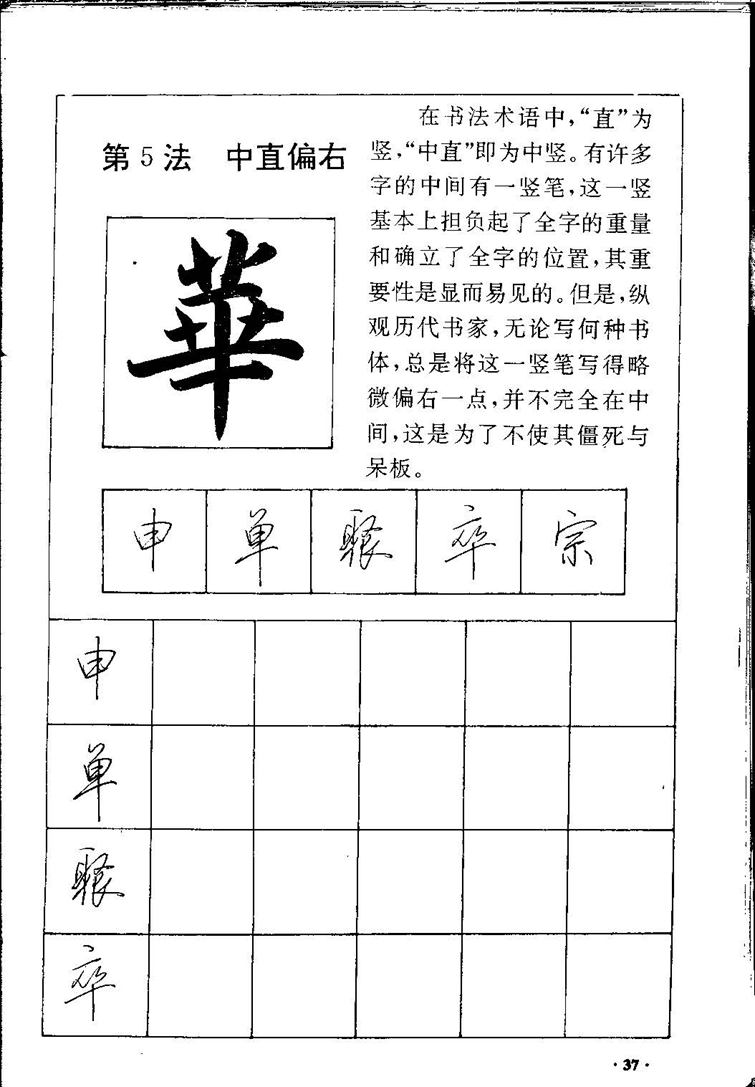 第5法　中直偏右
在书法术语中,“直”为
竖,“中直”即为中竖。有许多
字的中间有一竖笔,这一竖
基本上担负起了全字的重量
和确立了全字的位置,其重
要性是显而易见的。但是,纵
观历代书家,无论写何种书
体,总是将这一竖笔写得略
微偏右一点,并不完全在中
间,这是为了不使其僵死与
呆板。
華
申 单 聚 卒 宗
申
单
聚
卒
·37·